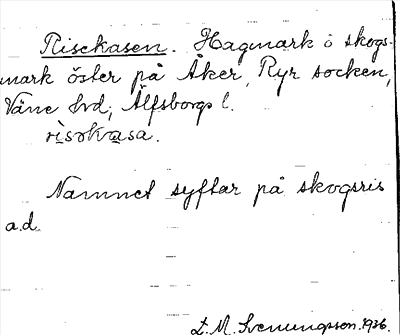 Risekasen. Hagmark o skogs-
mark öster på Åker, Ryr socken,
Väne hd, Älfsborgs l.
risəkasa.
Namnet syftar på skogsris
a.d.
L. M. Svenungsson. 1936.